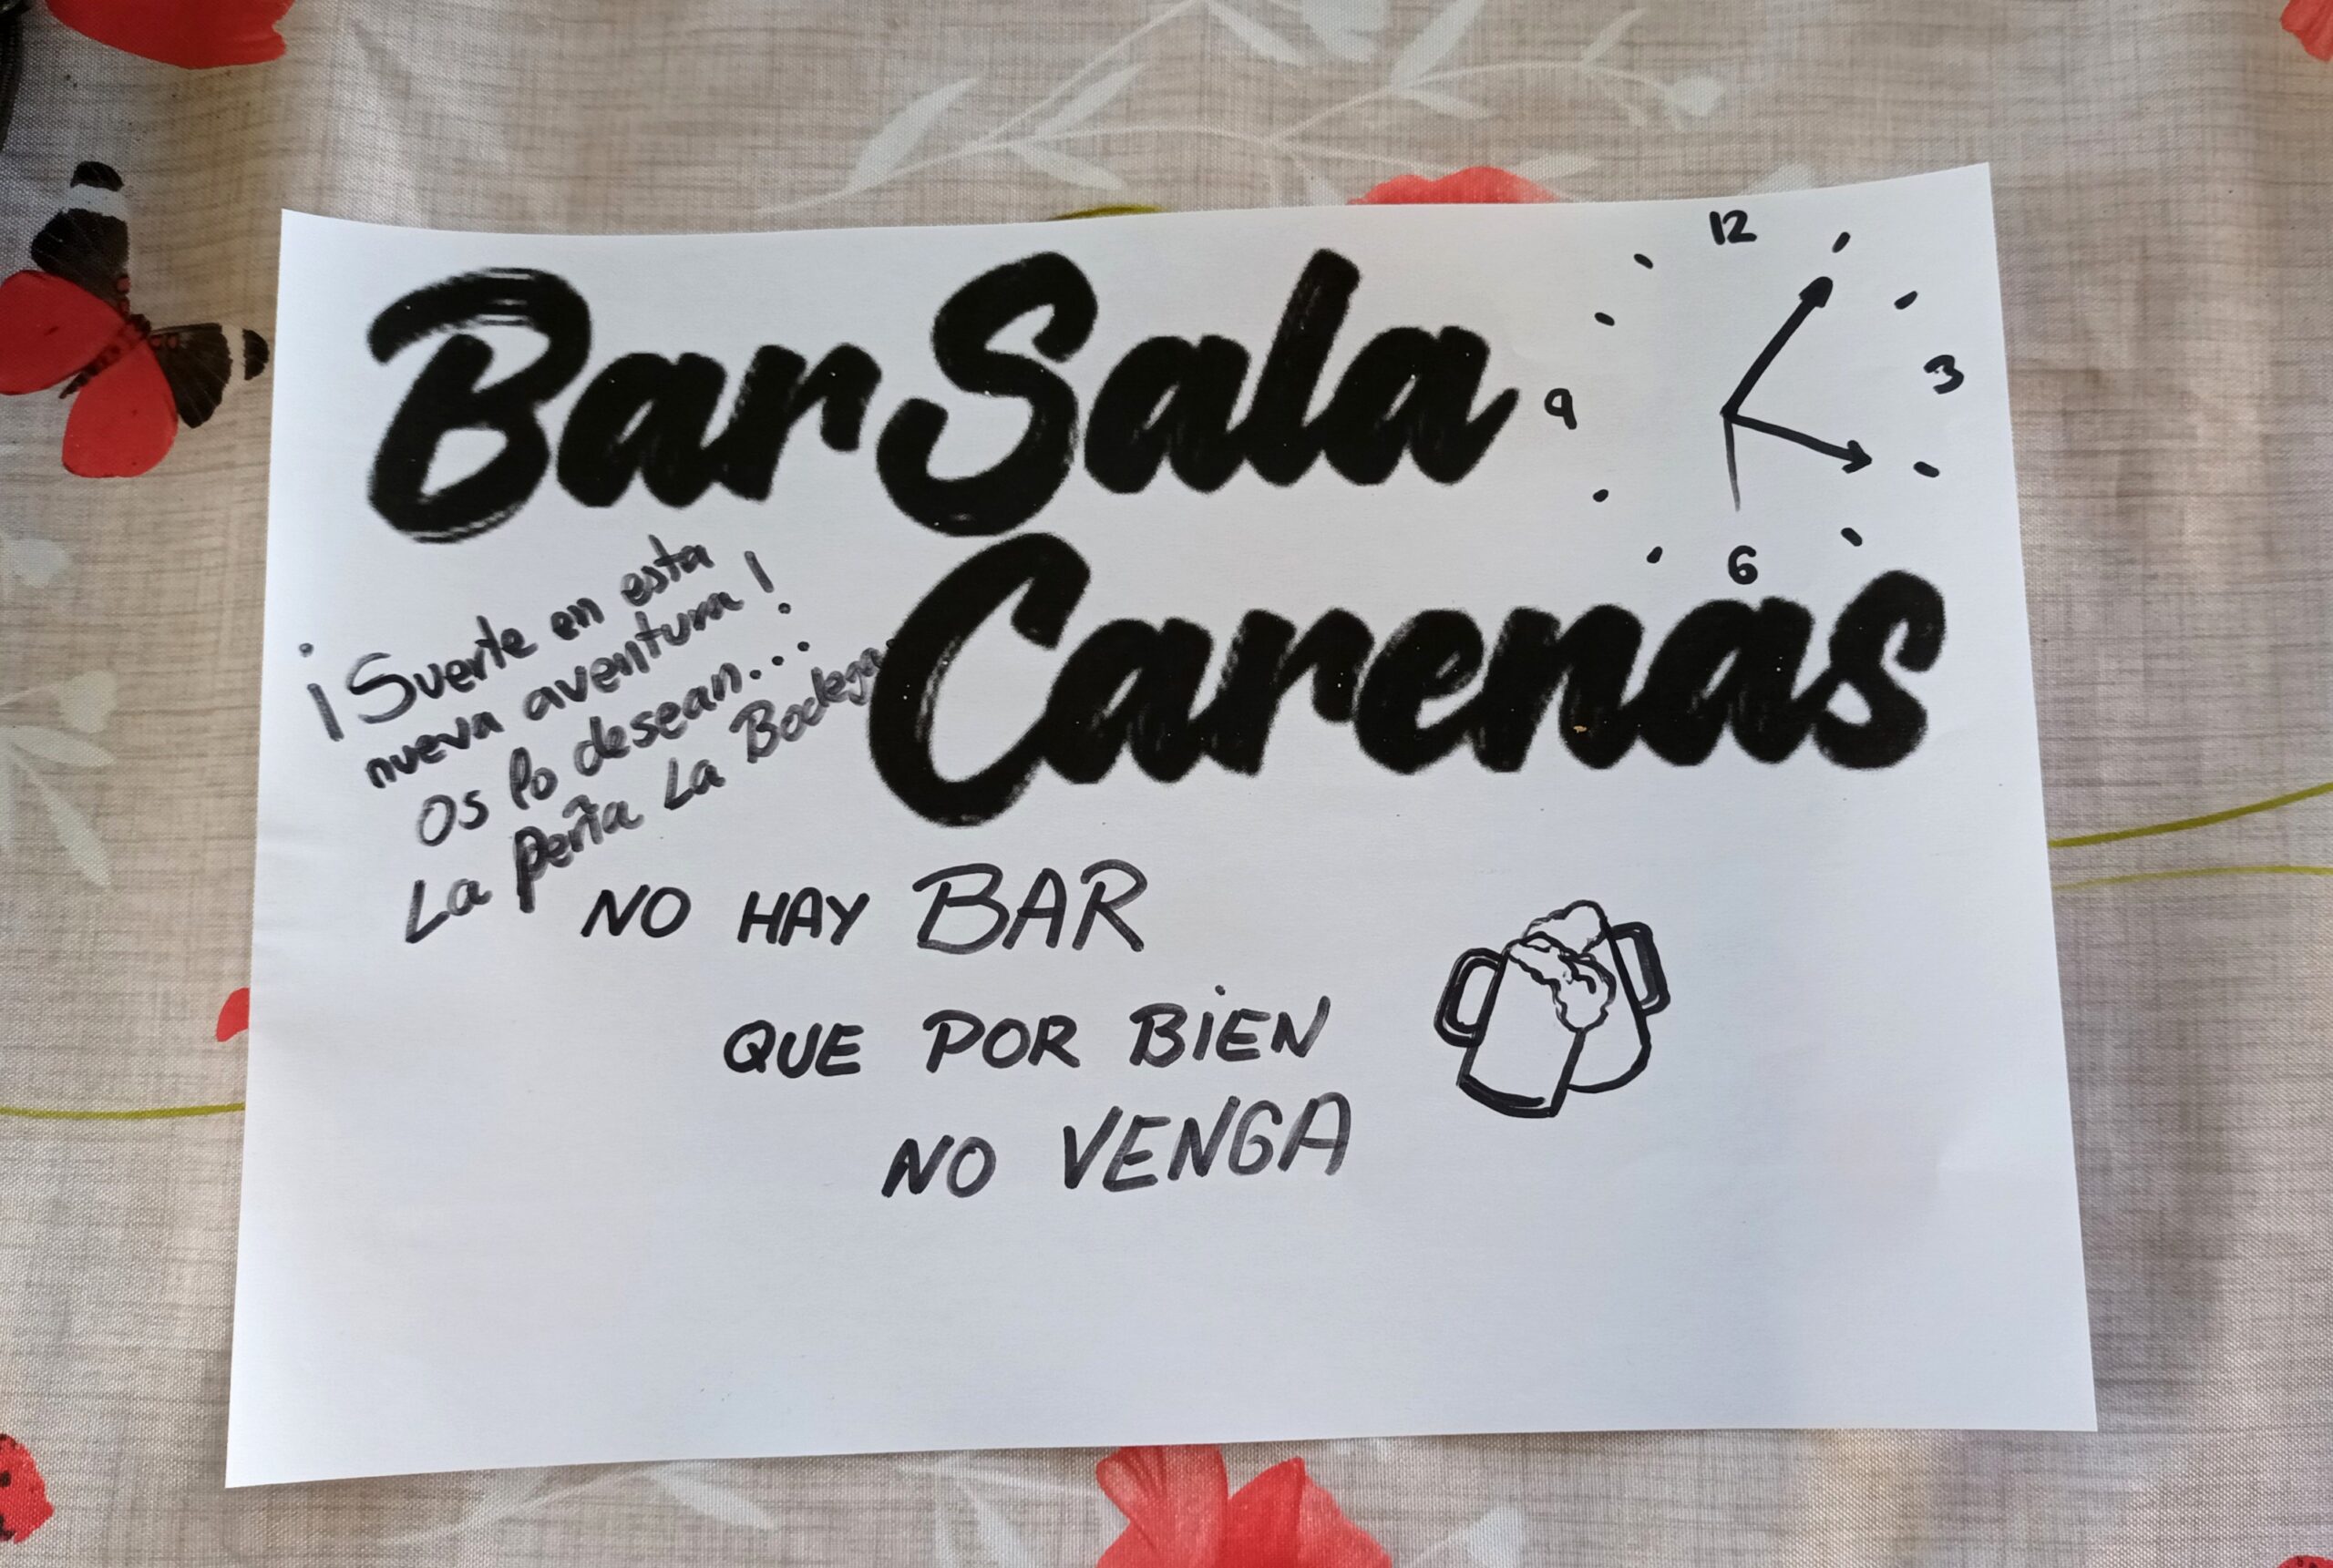 Bar Sala
Carenas
12
3
6
9
¡Suerte en esta
nueva aventura!
Os lo desean...
La peña La Bodega
NO HAY BAR
QUE POR BIEN
NO VENGA